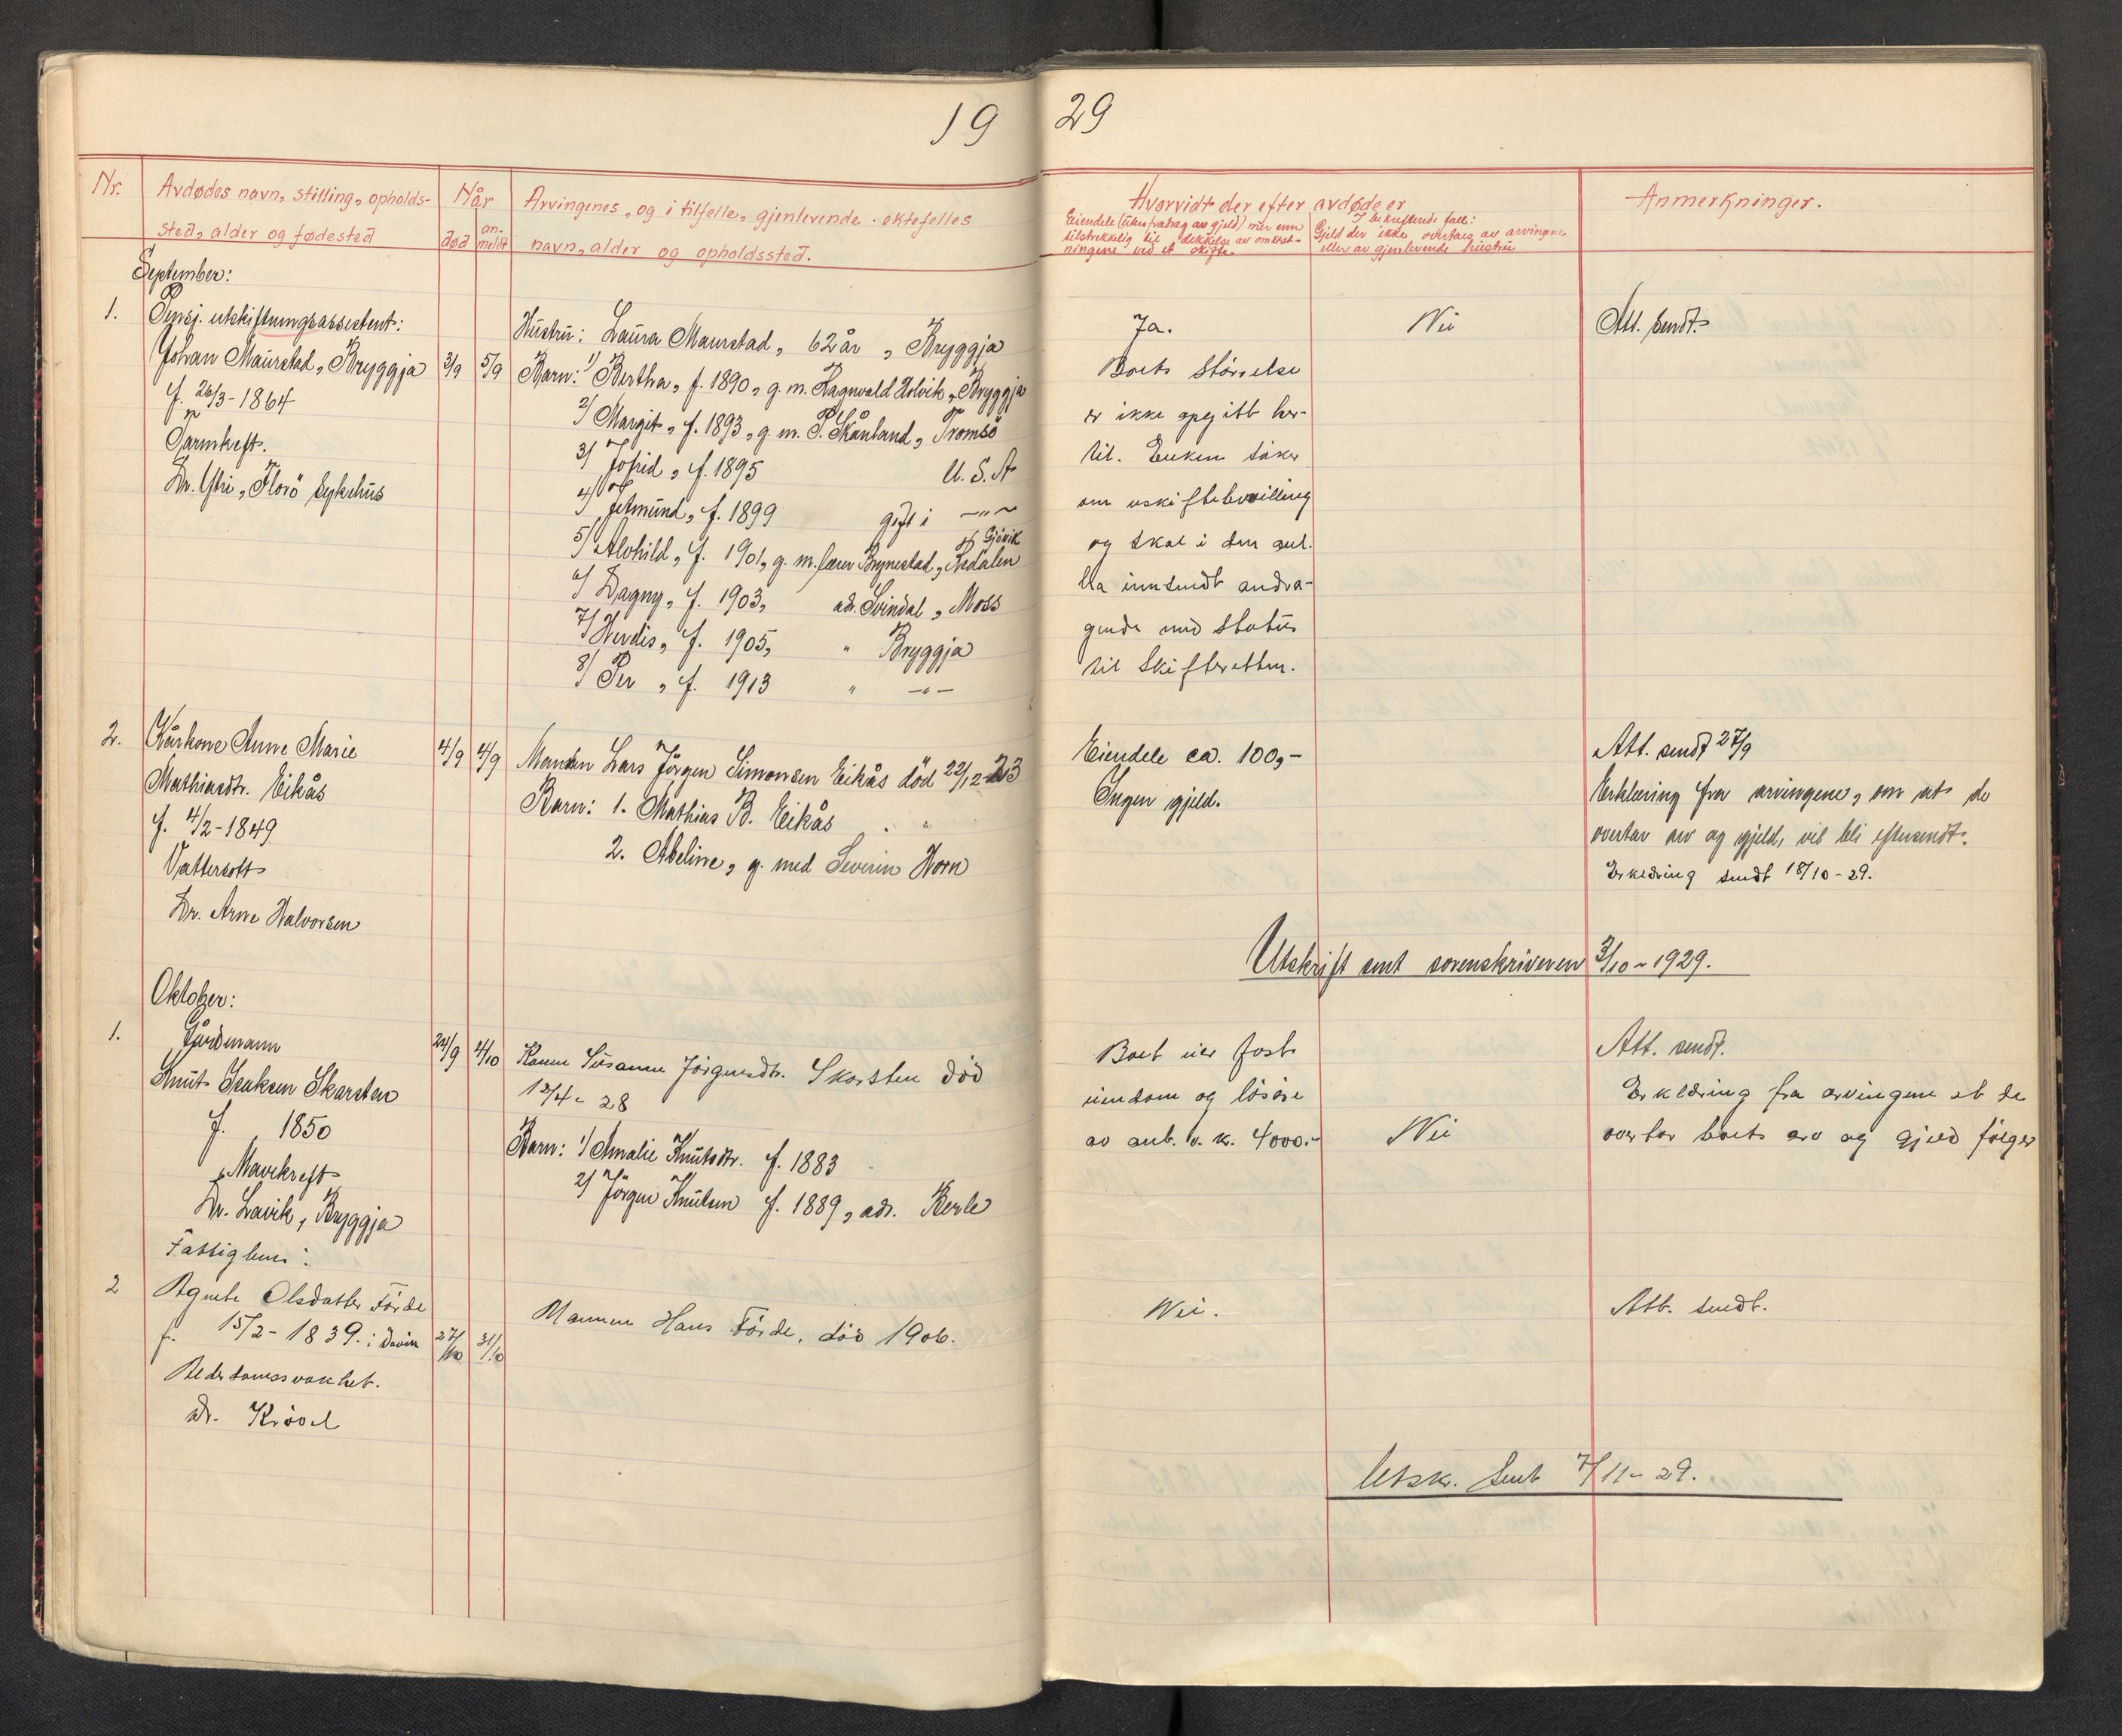 19 29
Nr.
Avdødes navn, stilling, opholds-
sted, alder og fødested
Når
død
an-
meldt
Arvingenes, og i tilfelle, gjenlevende ektefelles
navn, alder og opholdssted.
Hvorvidt der efter avdøde er
Eiendele (uten fradrag av gjeld) mer enn
tilstrekkelig til dekkelse av omkost-
ningene ved et skifte
I bekreftende fall:
Gjeld der ikke overtaes av arvingene
eller av gjenlevende hustru
Anmerkninger.
September:
1.
Pensj. utskiftningsassistent:
Johan Maurstad, Bryggja
f. 26/3-1864
Tarmkreft.
Dr. Ytri, Florö sykehus
3/9
5/9
Hustru: Laura Maurstad, 62 år, Bryggja
Barn: 1/ Bertha, f. 1890, g. m. Ragnvald Holvik, Bryggja
2/ Margit, f. 1893, g. m. P. Skånland, Tromsö
3/ Jofrid, f. 1895 U.S.A
4/ Jetmund, f. 1899 gift i —"—
5/ Alvhild, f. 1901, g. m. lærer Brynestad, Redalen
pr Gjövik
6/ Dagny, f. 1903, ad. Svindal, Moss
7/ Herdis, f. 1905, " Bryggja
8/ Per, f. 1913 " —"—
Ja.
Boets störrelse
er ikke opgitt her-
til. Enken söker
om uskiftebevilling
og skal i den anl.
ha innsendt andra-
gende med status
til Skifteretten.
Nei
Att. sendt.
2.
Kårkone Anne Marie
Mathiasdtr. Eikås
f. 4/2-1849
Vattersott
Dr. Arne Halvorsen
4/9
4/9
Mannen Lars Jörgen Simonsen Eikås död 22/12-23
Barn: 1. Mathias B. Eikås
2. Abeline, g. med Severin Horn
Eiendele ca. 100,-
Ingen gjeld.
Att. sendt 27/9
Erklæring fra arvingene, om at de
overtar arv og gjeld, vil bli eftersendt.
Erklæring sendt 18/10-29.
Utskrift sent sorenskriveren 3/10-1929.
Oktober:
1.
Gårdmann
Knut Isaksen Skarsten
f. 1850
Mavekreft
Dr. Lavik, Bryggja
24/9
4/10
Konen Susanne Jörgensdtr. Skarsten död
12/4-28
Barn: 1/ Amalie Knutsdtr. f. 1883
2/ Jörgen Knutsen f. 1889, adr. Berle
Boet eier fast
eiendom og lösöre
av ant. v. kr. 4000.-
Nei
Att. sendt.
Erklæring fra arvingene at de
overtar boets arv og gjeld fölger
Fattiglem:
2
Agnete Olsdatter Förde
f. 15/2-1839. i Davik
Alderdomssvakhet.
dr. Krövel
27/10
31/10
Mannen Hans Förde, död 1906.
Nei.
Att. sendt.
Utskr. sent 7/11-29.